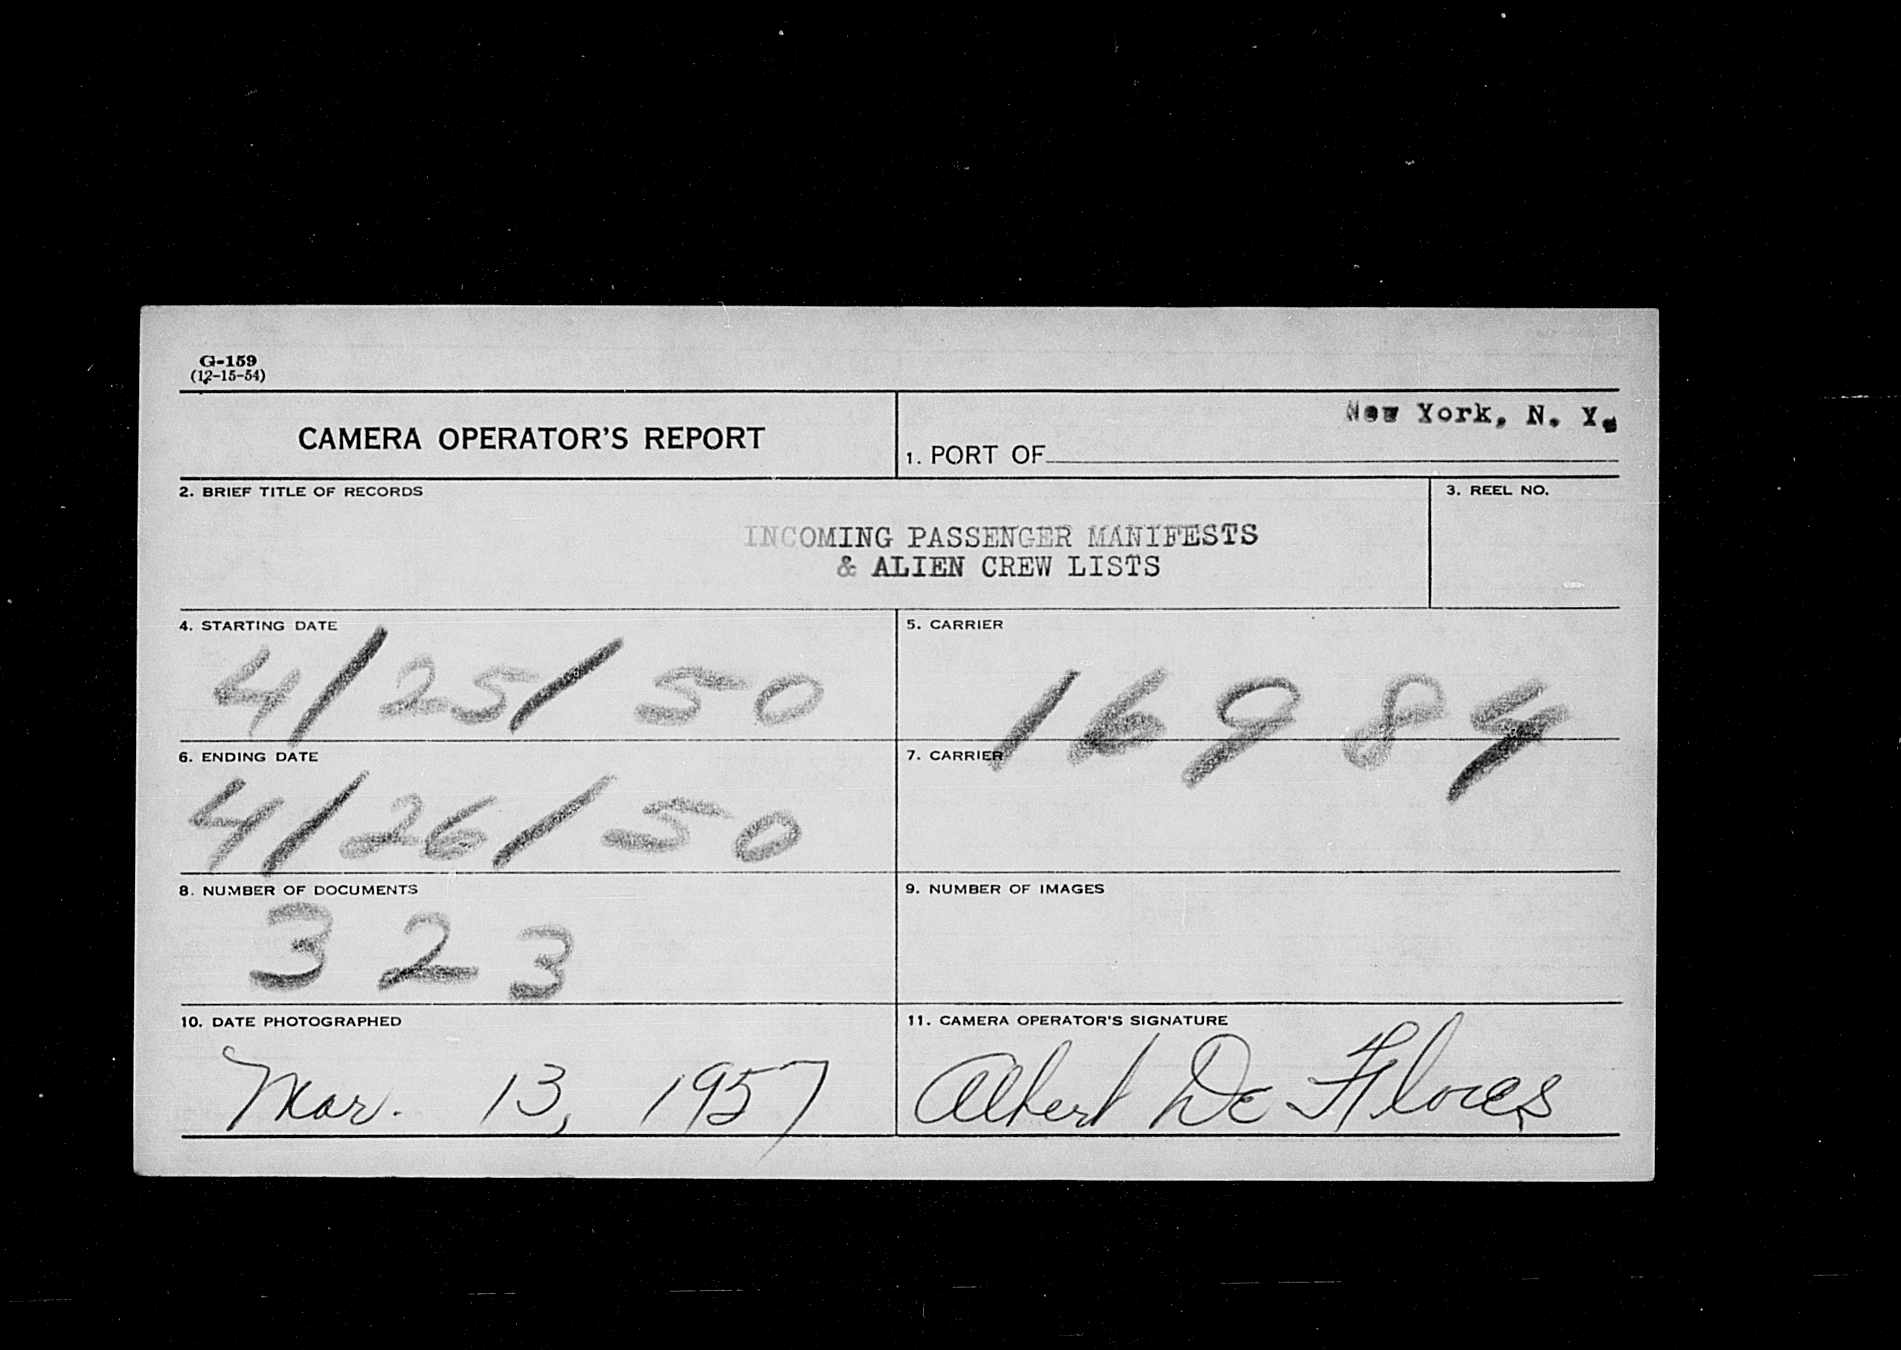 G-159
(12-15-54)
CAMERA OPERATOR'S REPORT
New York, N. Y.
1. PORT OF
2. BRIEF TITLE OF RECORDS
3. REEL NO.
INCOMING PASSENGER MANIFESTS
& ALIEN CREW LISTS
4. STARTING DATE
4/25/50
5. CARRIER
16984
6. ENDING DATE
4/26/50
7. CARRIER
8. NUMBER OF DOCUMENTS
323
9. NUMBER OF IMAGES
10. DATE PHOTOGRAPHED
Mar. 13, 1957
11. CAMERA OPERATOR'S SIGNATURE
Albert De Flores